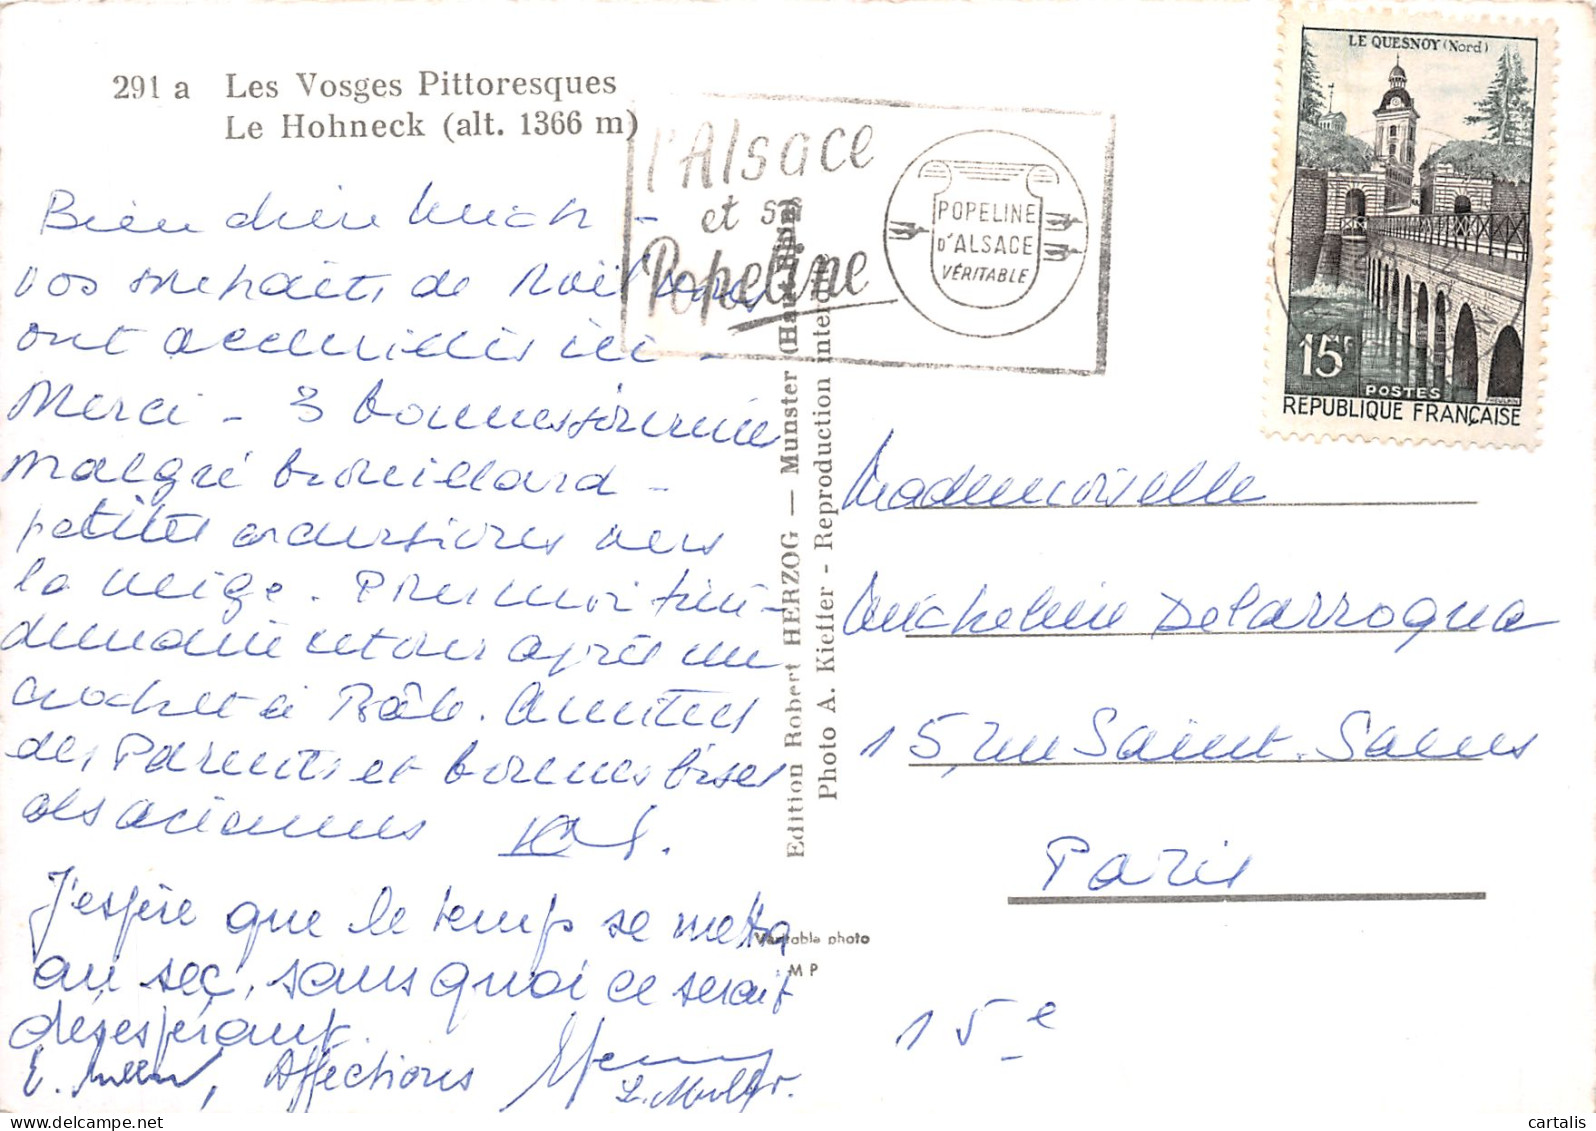 291 a Les Vosges Pittoresques
Le Hohneck (alt. 1366 m)
l'Alsace
et sa
Popeline
POPELINE
D'ALSACE
VÉRITABLE
LE QUESNOY (Nord)
15F
POSTES
REPUBLIQUE FRANÇAISE
Bien chère Mich -
vos souhaits de Noël nous
ont accueillis ici -
Merci - 3 bonnes journées
malgré brouillard -
petites excursions vers
la neige. Pour moi
retour après un
crochet à Bâle. Amitiés
des Parents et bonnes bises
alsaciennes
J'espère que le temps se mettra
au sec, sans quoi ce serait
désespérant.
E. Muller, Affections
L. Muller.
Edition Robert HERZOG — Munster (Haut-Rhin)
Photo A. Kieffer - Reproduction interdite
Véritable photo
MP
Mademoiselle
Micheline Delarroqua
15, rue Saint-Saens
Paris
15e
cartalis